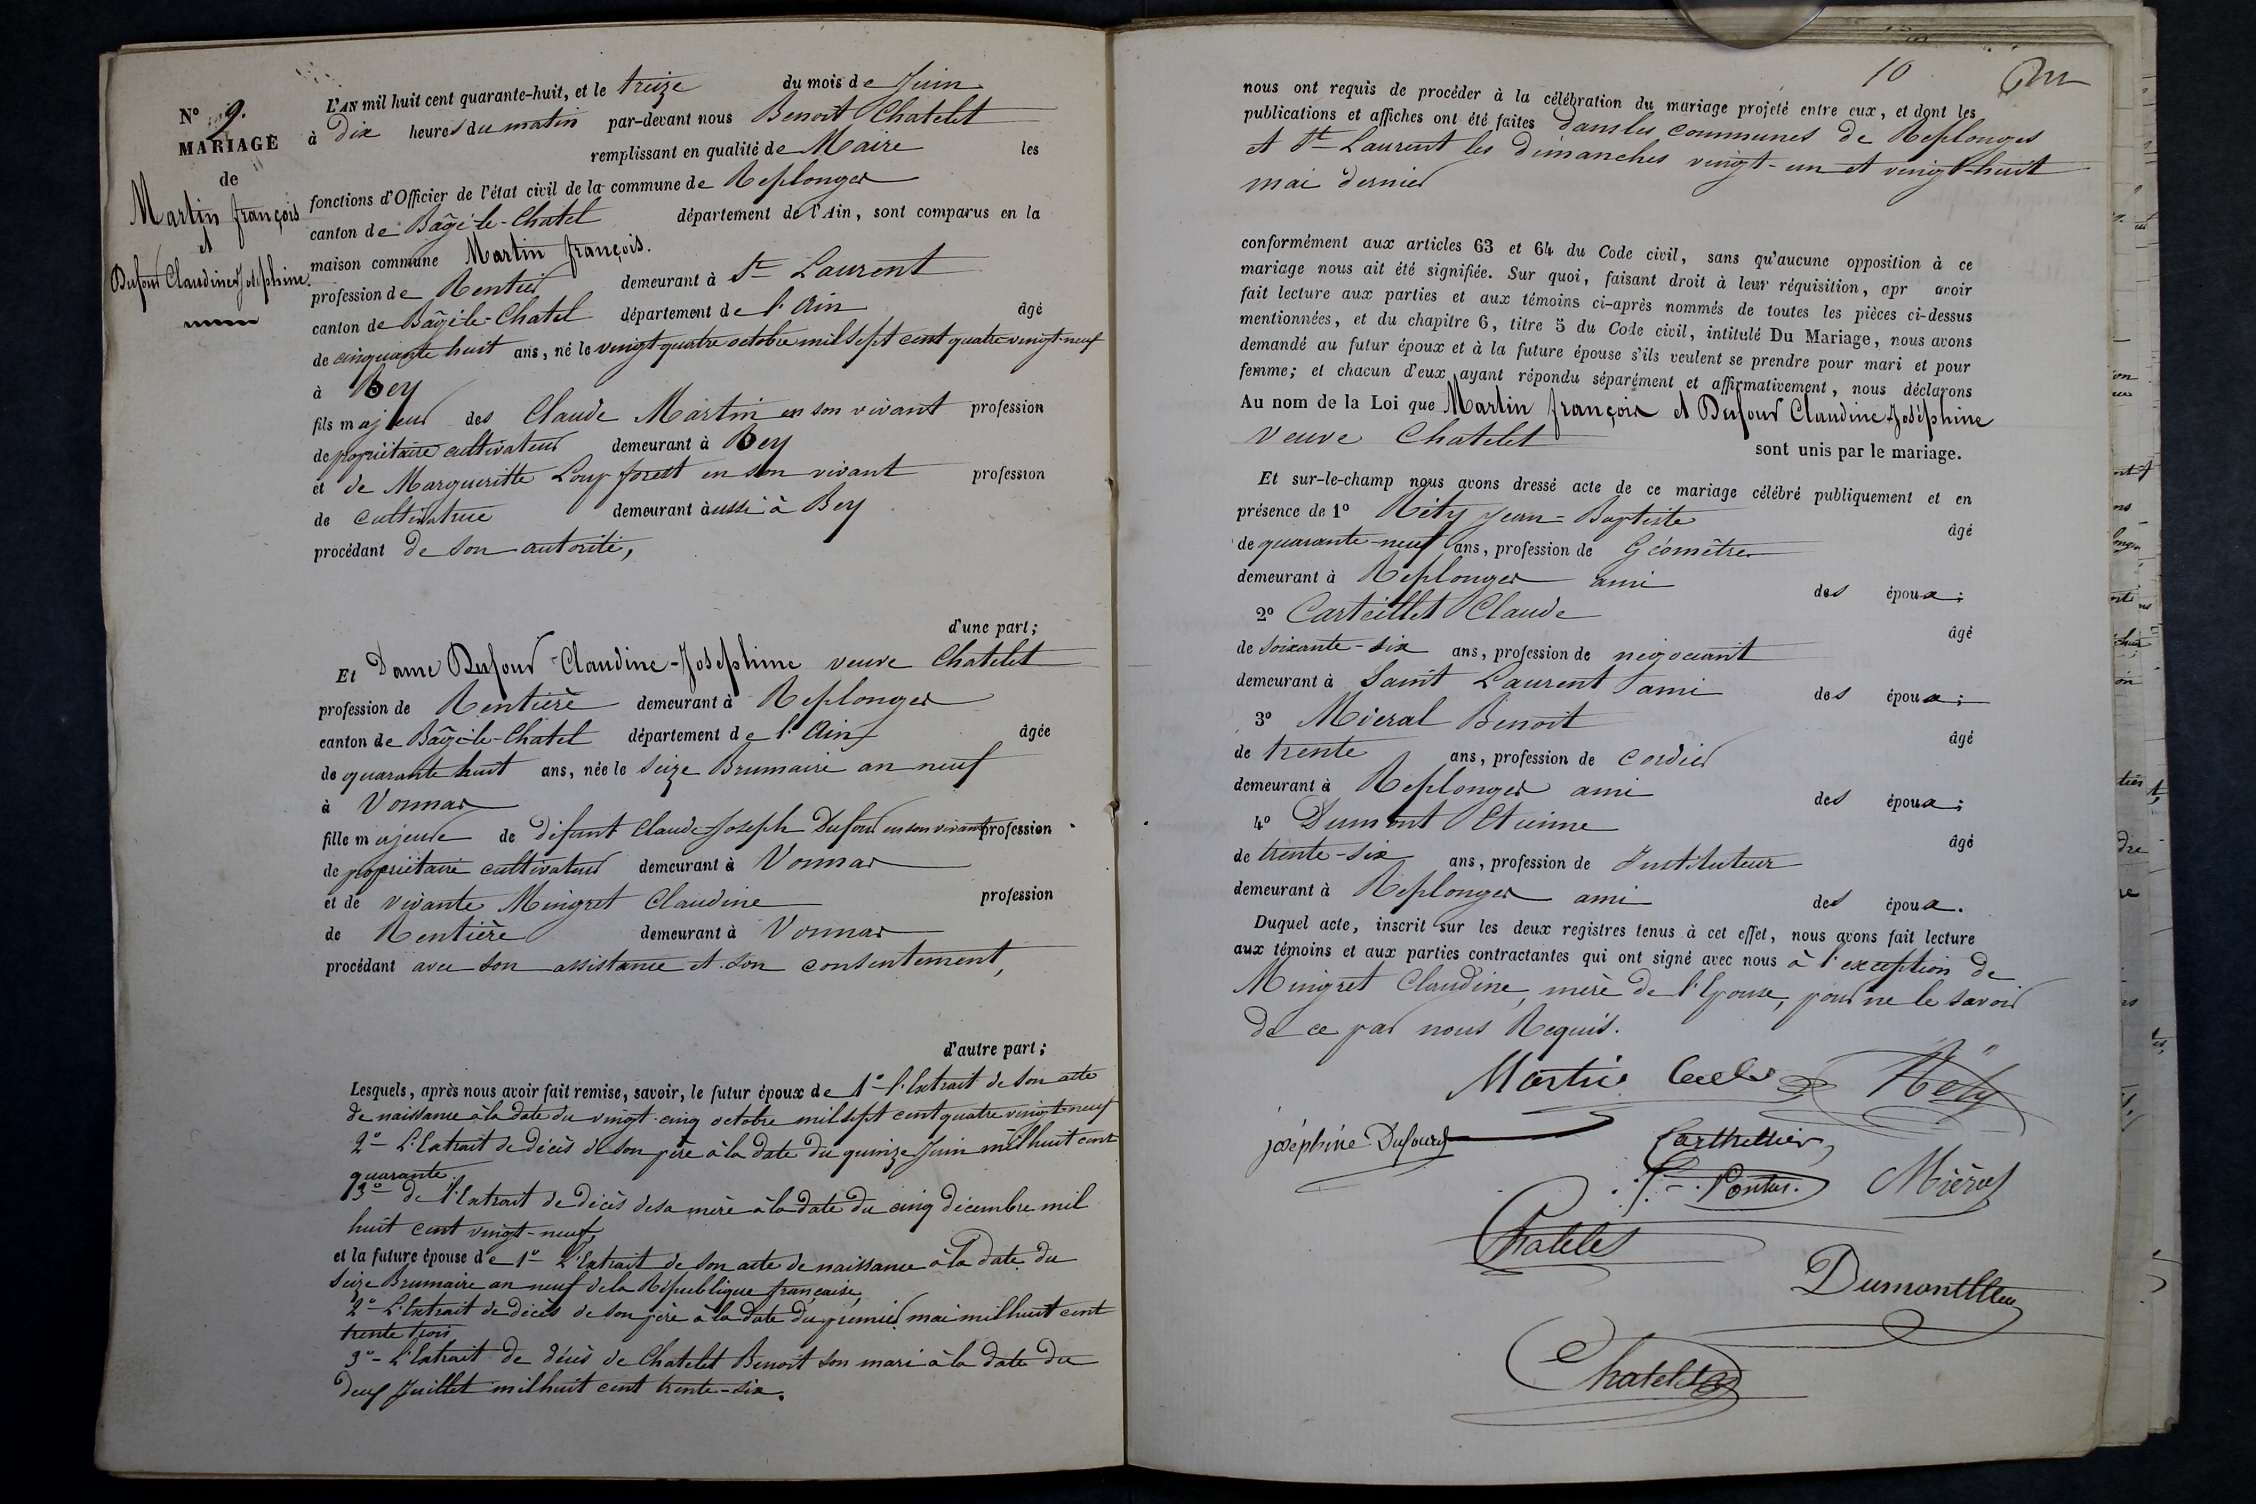 N° 9.
MARIAGE
de
Martin françois
et
Dufour Claudine Joséphine.
L'AN mil huit cent quarante-huit, et le treize du mois de Juin
à dix heures du matin par-devant nous Benoit Chatelet
remplissant en qualité de Maire les
fonctions d'Officier de l'état civil de la commune de Replonges
canton de Bâgé-le-Chatel département de l'Ain, sont comparus en la
maison commune Martin françois.
profession de Rentier demeurant à St Laurent
canton de Bâgé-le-Chatel département de l'Ain âgé
de cinquante huit ans, né le vingt quatre octobre mil sept cent quatre-vingt-neuf
à Bey
fils majeur des Claude Martin en son vivant profession
de propriétaire cultivateur demeurant à Bey
et de Margueritte Loup forest en son vivant profession
de cultivatrice demeurant aussi à Bey
procédant de son autorité,
d'une part;
Et Dame Dufour-Claudine-Joséphine veuve Chatelet
profession de Rentière demeurant à Replonges
canton de Bâgé-le-Chatel département de l'Ain âgée
de quarante huit ans, née le seize Brumaire an neuf
à Vonnas
fille majeure de défunt Claude Joseph Dufour en son vivant profession
de propriétaire cultivateur demeurant à Vonnas
et de vivante Mingret Claudine profession
de Rentière demeurant à Vonnas
procédant avec son assistance et son consentement,
d'autre part;
Lesquels, après nous avoir fait remise, savoir, le futur époux de 1° l'Extrait de son acte
de naissance à la date du vingt-cinq octobre mil sept cent quatre vingt-neuf
2° L'Extrait de décès de son père à la date du quinze Juin mil huit cent
quarante.
3° de l'Extrait de décès de sa mère à la date du cinq décembre mil
huit cent vingt-neuf,
et la future épouse de 1° L'Extrait de son acte de naissance à la date du
seize Brumaire an neuf de la République française,
2° L'Extrait de décès de son père à la date du premier mai mil huit cent
trente trois
3° L'Extrait de décès de Chatelet Benoit son mari à la date du
deux Juillet mil huit cent trente-six.
10
nous ont requis de procéder à la célébration du mariage projeté entre eux, et dont les
publications et affiches ont été faites dans les communes de Replonges
et St Laurent les dimanches vingt-un et vingt-huit
mai dernier
conformément aux articles 63 et 64 du Code civil, sans qu'aucune opposition à ce
mariage nous ait été signifiée. Sur quoi, faisant droit à leur réquisition, apr avoir
fait lecture aux parties et aux témoins ci-après nommés de toutes les pièces ci-dessus
mentionnées, et du chapitre 6, titre 5 du Code civil, intitulé Du Mariage, nous avons
demandé au futur époux et à la future épouse s'ils veulent se prendre pour mari et pour
femme; et chacun d'eux ayant répondu séparément et affirmativement, nous déclarons
Au nom de la Loi que Martin françois et Dufour Claudine-Joséphine
veuve Chatelet sont unis par le mariage.
Et sur-le-champ nous avons dressé acte de ce mariage célébré publiquement et en
présence de 1° Réty Jean-Baptiste âgé
de quarante-neuf ans, profession de Géomètre
demeurant à Replonges ami des époux;
2° Carteillet Claude âgé
de soixante-six ans, profession de négociant
demeurant à Saint Laurent ami des époux;
3° Miéral Benoit âgé
de trente ans, profession de cordier
demeurant à Replonges ami des époux;
4° Dumont Etienne âgé
de trente-six ans, profession de Instituteur
demeurant à Replonges ami des époux.
Duquel acte, inscrit sur les deux registres tenus à cet effet, nous avons fait lecture
aux témoins et aux parties contractantes qui ont signé avec nous à l'exception de
Mingret Claudine, mère de l'Epouse, pour ne le savoir
de ce par nous Requis.
Martin
Réty
joséphine Dufour
Carthellier
Miéral
Chatelet
Dumont
Chatelet